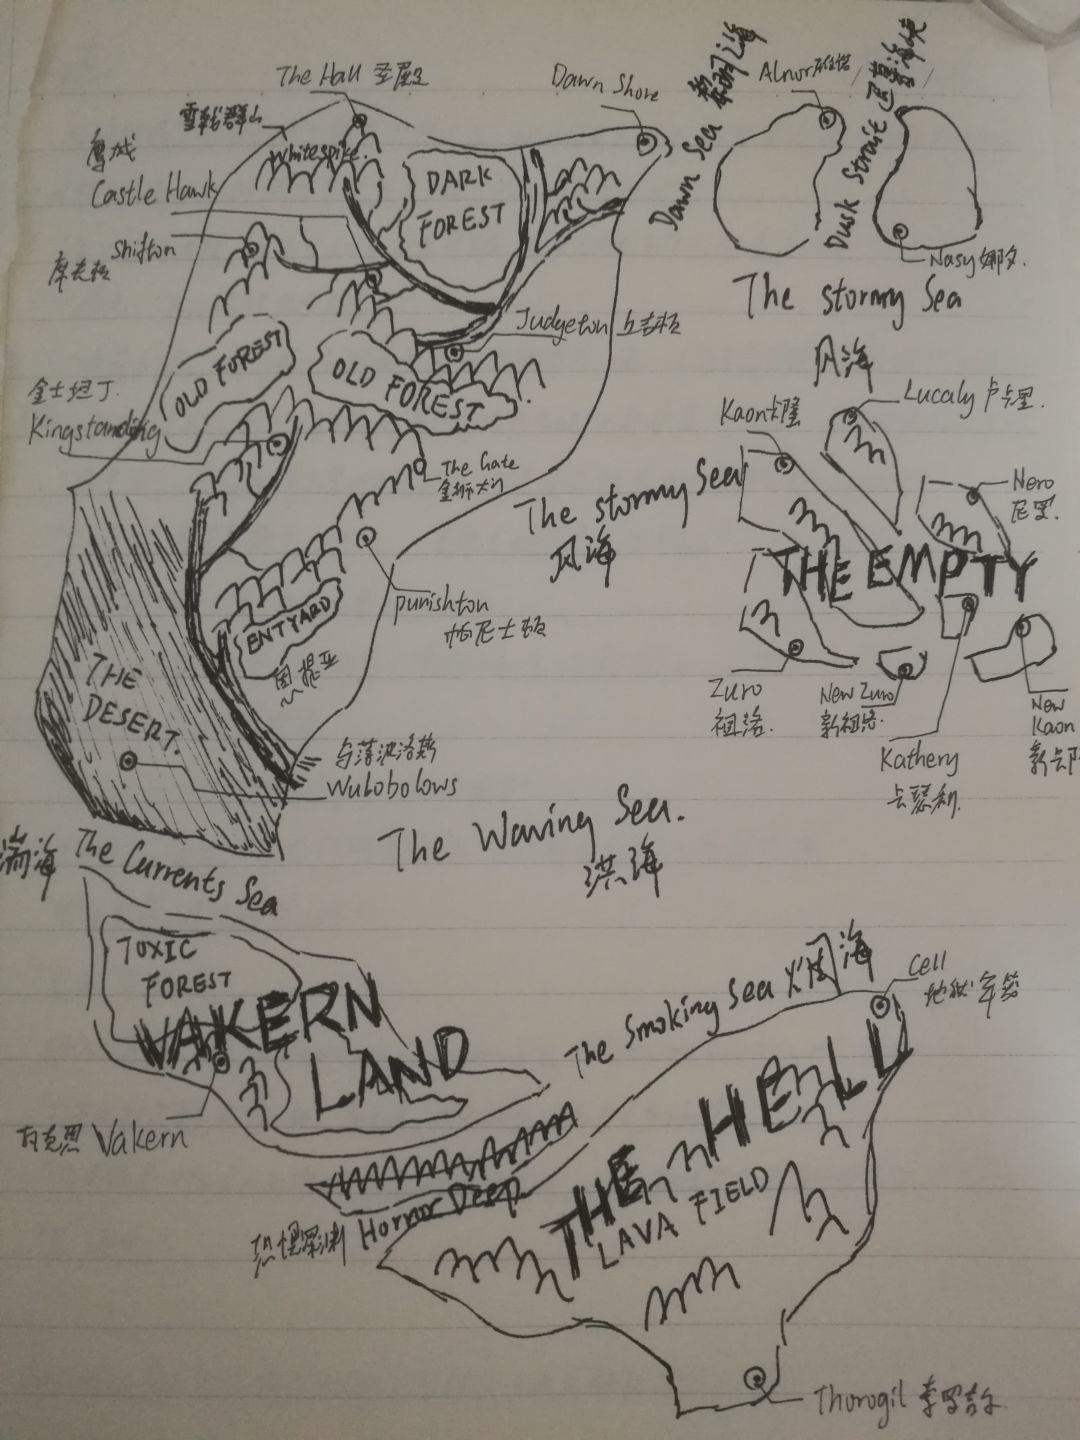 The Hall 圣殿
Dawn Shore
Dawn Sea
Alnur
Dusk Strait
雪刺群山
Whitespike
鹰城
Castle Hawk
DARK
FOREST
Shifton
Nasy 娜夕.
The stormy Sea
风海
Judgeton
OLD FOREST
OLD FOREST
金士坦丁.
Kingstanding
Kaon 卡隆
Lucaly 卢卡里.
The Gate
金狮大门
Nero
尼罗.
The stormy Sea
风海
THE EMPTY
Punishton
帕尼士顿
ENTYARD
茵提亚
THE
DESERT.
Zuro
祖洛.
New Zuro
新祖洛.
New
Kaon
Kathery
卡瑟利.
乌落波洛斯
Wulobolows
The Waving Sea.
洪海
湍海 The Currents Sea
TOXIC
FOREST
VAKERN
LAND
The Smoking Sea 烟海
Cell
瓦克恩 Vakern
THE HELL
LAVA FIELD
恐惧深渊 Horror Deep
Thorogil 索罗吉尔